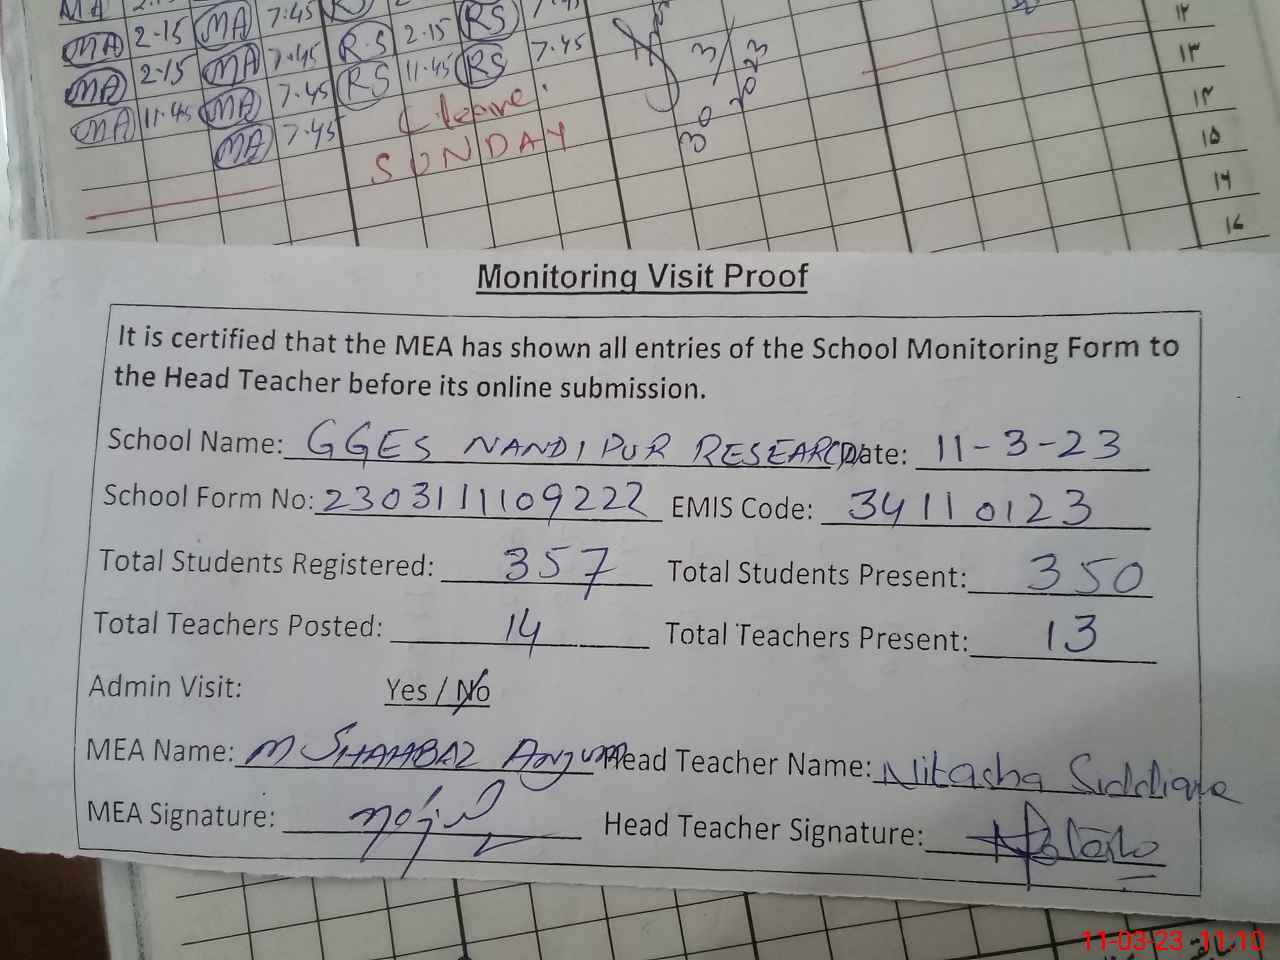 MA 2-15 MA 7:45 RS
MA 2-15 MA 7.45 R.S 2.15 RS 7.45
MA 11.45 MA 7.45 RS 11.45 RS 7.45
MA 7.45 leave.
SUNDAY
30/3/2023
۱۲
۱۳
۱۴
۱۵
۱۶
Monitoring Visit Proof
It is certified that the MEA has shown all entries of the School Monitoring Form to
the Head Teacher before its online submission.
School Name: GGES NANDIPUR RESEARCH Date: 11-3-23
School Form No: 2303111109222 EMIS Code: 34110123
Total Students Registered: 357 Total Students Present: 350
Total Teachers Posted: 14 Total Teachers Present: 13
Admin Visit: Yes / No
MEA Name: M SHAHBAZ Anjum Head Teacher Name: Nitasha Siddique
MEA Signature: Head Teacher Signature:
11-03-23 11:10